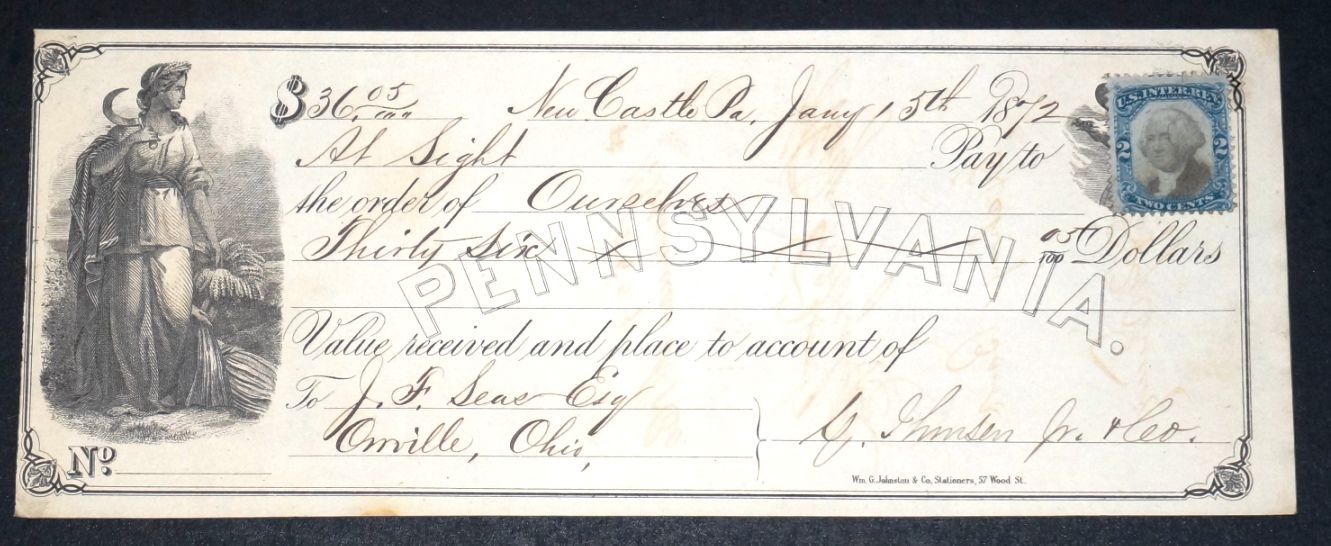 $36.05/100 New Castle Pa, Jany 15th 1872
At Sight Pay to
the order of Ourselves
Thirty Six 05/100 Dollars
PENNSYLVANIA.
Value received and place to account of
To J. F. Seas Esq
Orrville, Ohio,
Jr. & Co.
No.
Wm. G. Johnston & Co, Stationers, 57 Wood St.
U.S. INTER. REV.
2 2
TWO CENTS